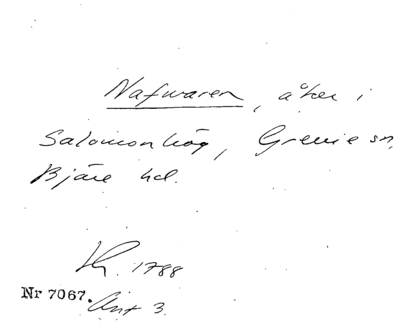 Nafwaren, åker i
Salomonhög, Grevie sn,
Bjäre hd.
1788
Nr 7067. Ant 3.